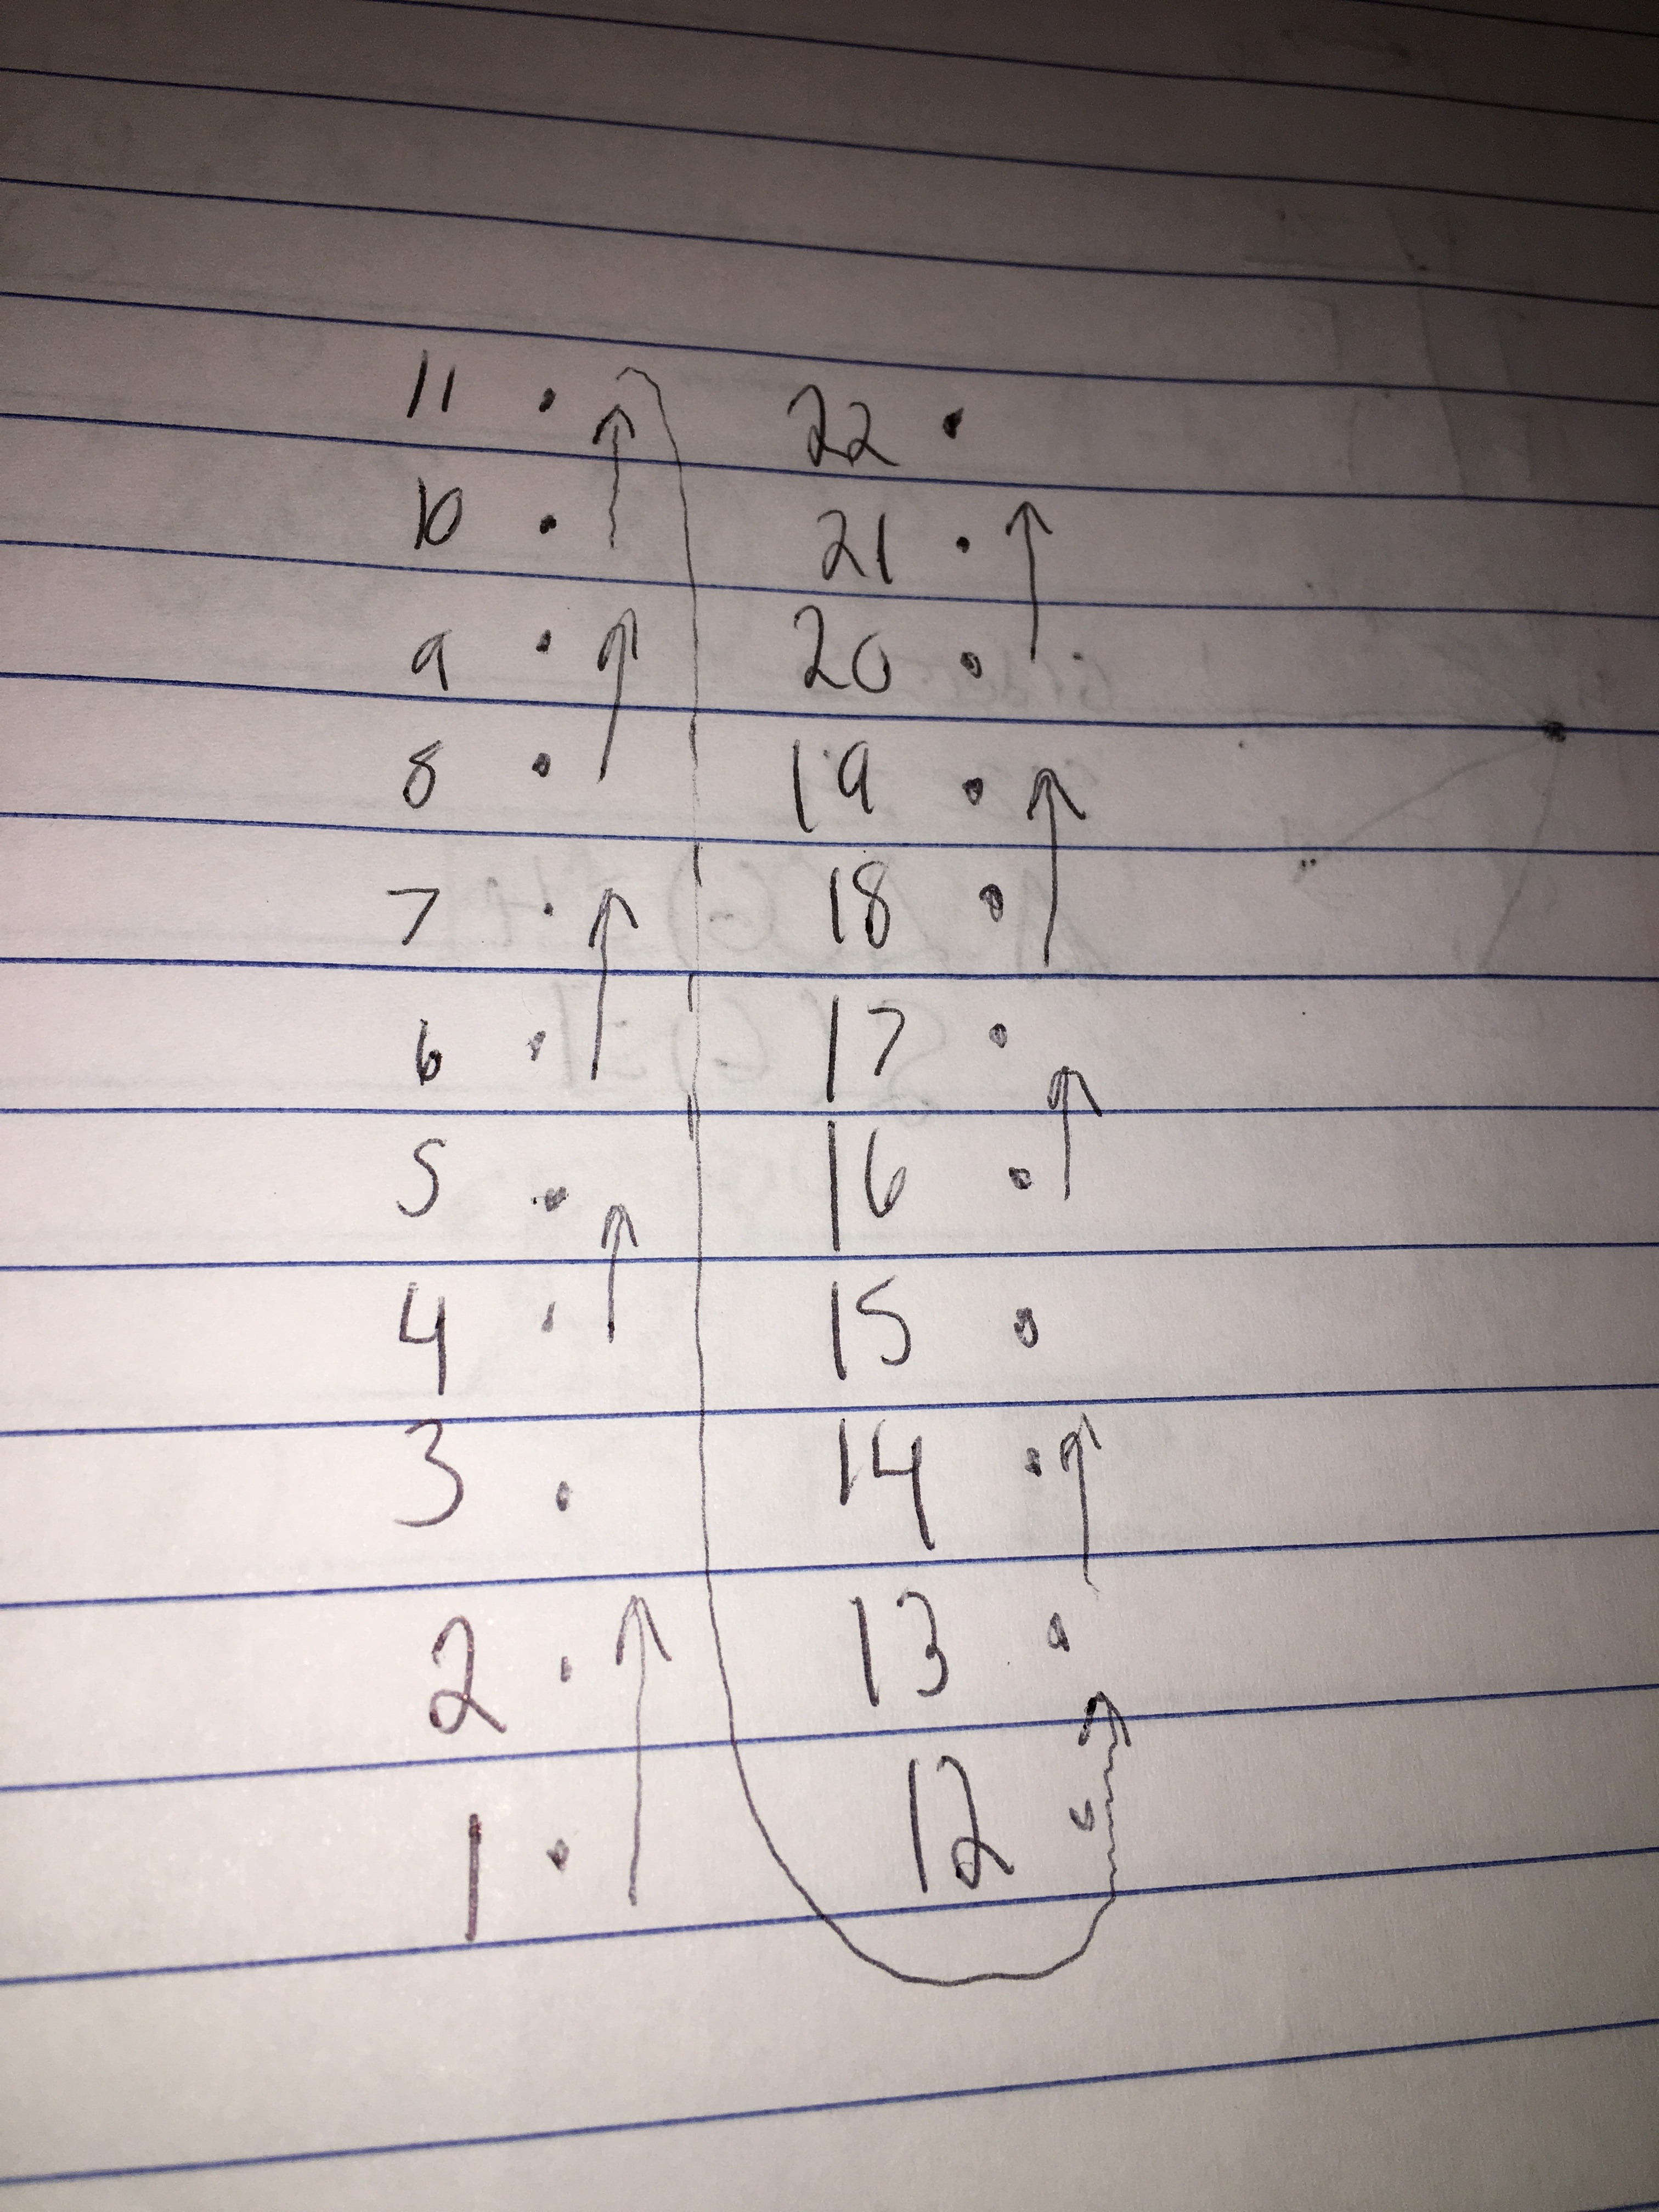 11 22
10 21
9 20
8 19
7 18
6 17
5 16
4 15
3 14
2 13
1 12